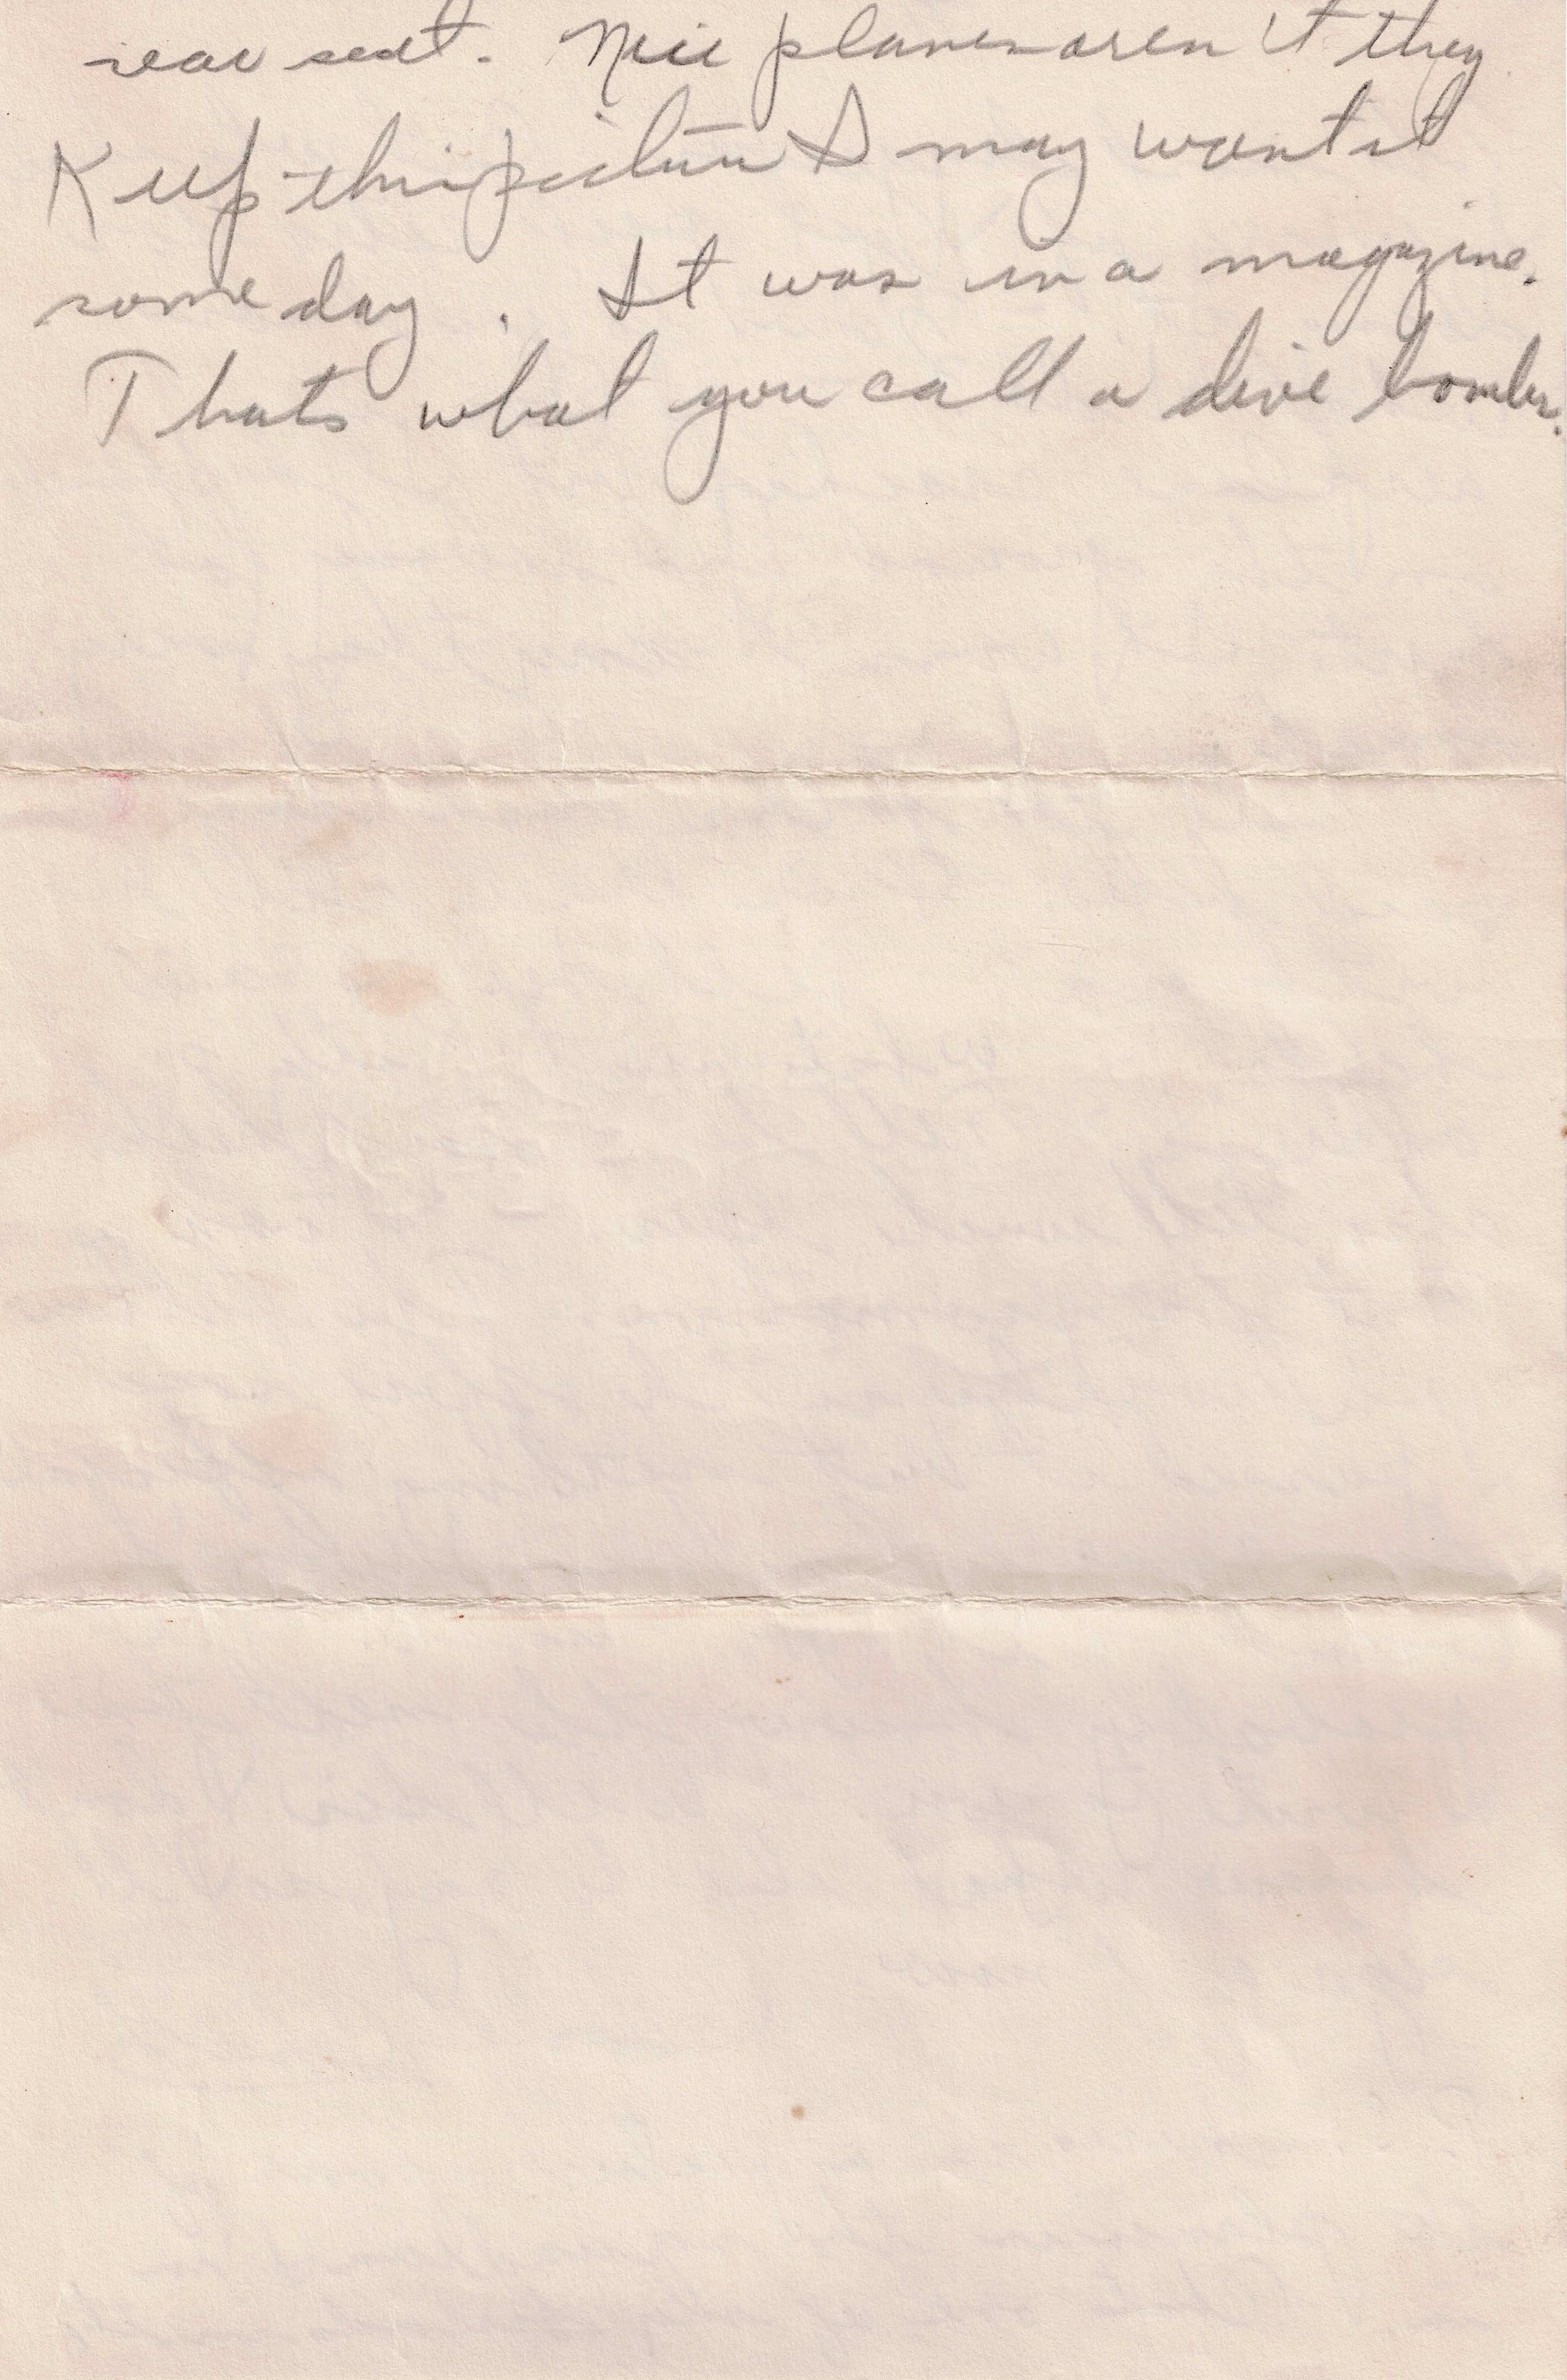 rear seat. Nice planes aren't they
Keep this picture I may want it
some day. It was in a magazine.
Thats what you call a dive bomber.